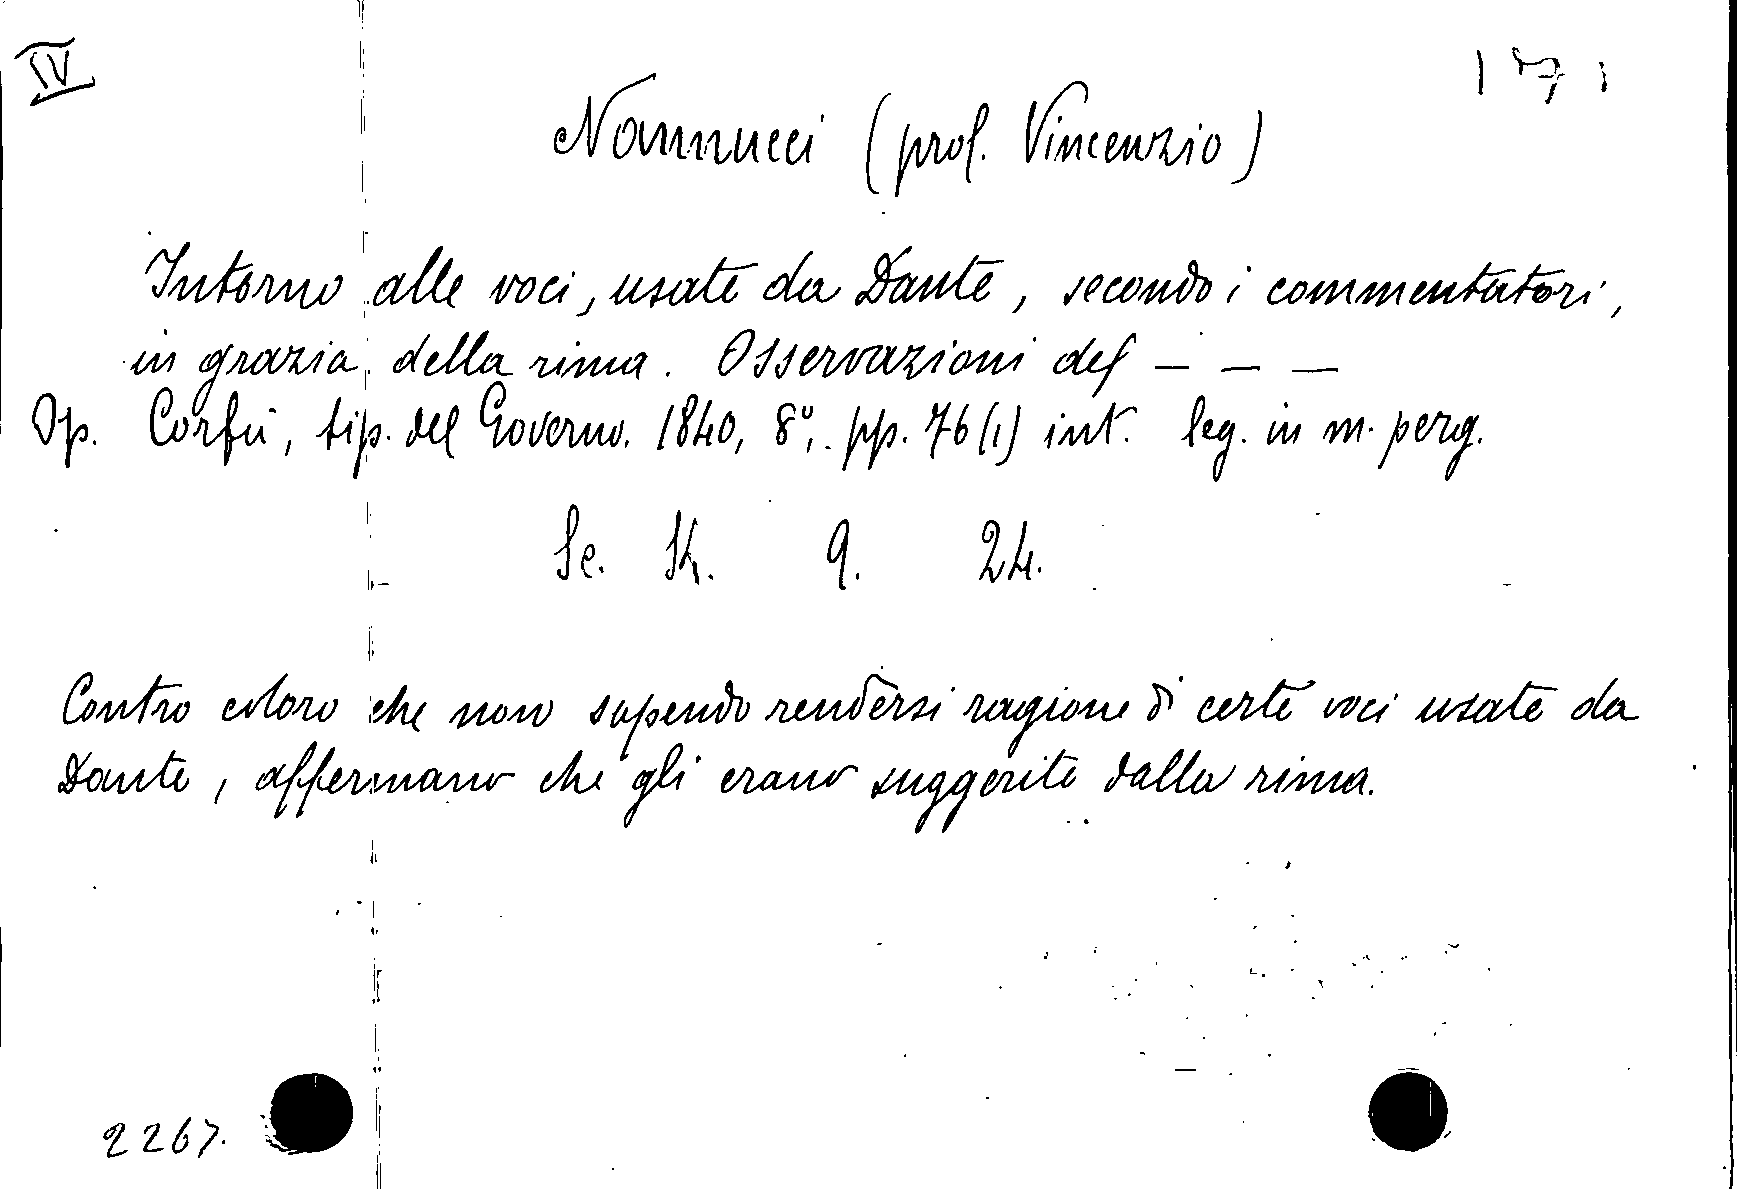 IV
Nannucci (prof. Vincenzio)
Intorno alle voci, usate da Dante, secondo i commentatori,
in grazia della rima. Osservazioni del — — —
Op. Corfù, tip. del Governo. 1840, 8°, pp. 76 (1) int. leg. in m. perg.
Sc. K. 9. 24.
Contro coloro che non sapendo rendersi ragione di certe voci usate da
Dante, affermano che gli erano suggerite dalla rima.
2267.